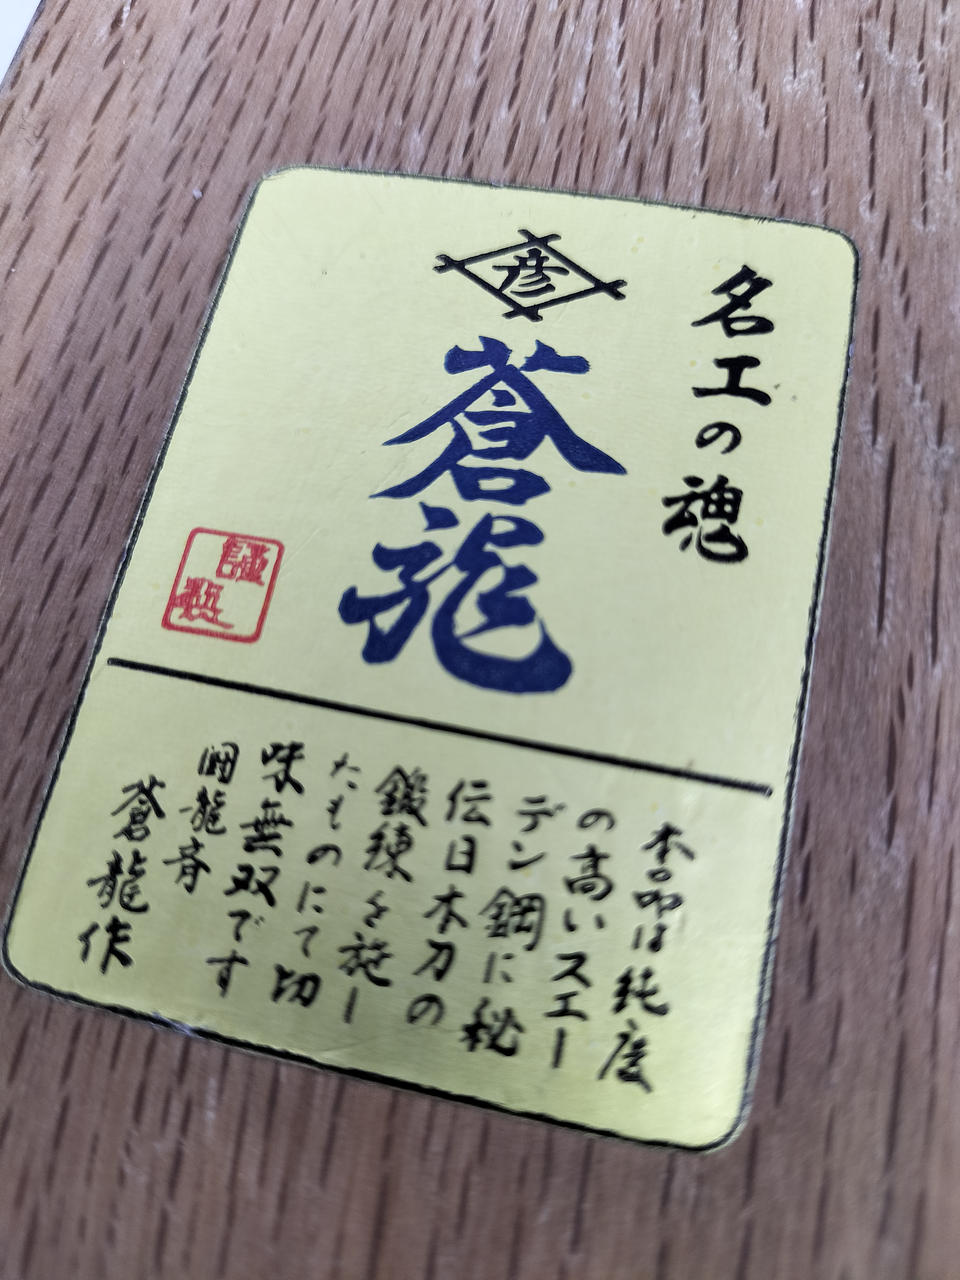 名工の魂
彦
蒼龍
謹製
本品は純度
の高いスエー
デン鋼に秘
伝日本刀の
鍛錬を施し
たものにて切
味無双です
龍斉
蒼龍作